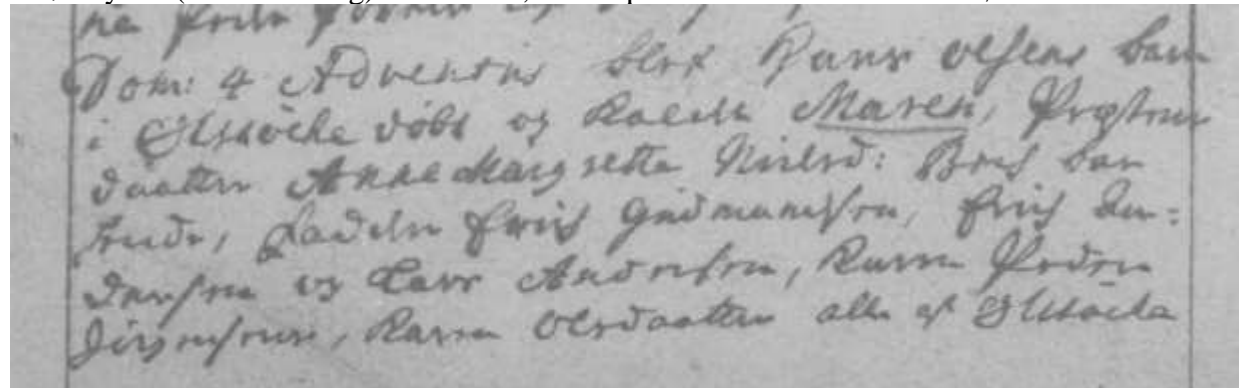 Dom: 4 Adventus blev Hans Olsens barn
i Ølstöcke döbt og kaldet Maren, Præstens
daatter Anne Margretta Nielsd: Bech bar
hende, Faddere Erich Gudmundsen, Erich An-
dersen og Lars Andersen, Karen Peder
Jörgensens, Karen Olesdaatter alle af Ølstöcke